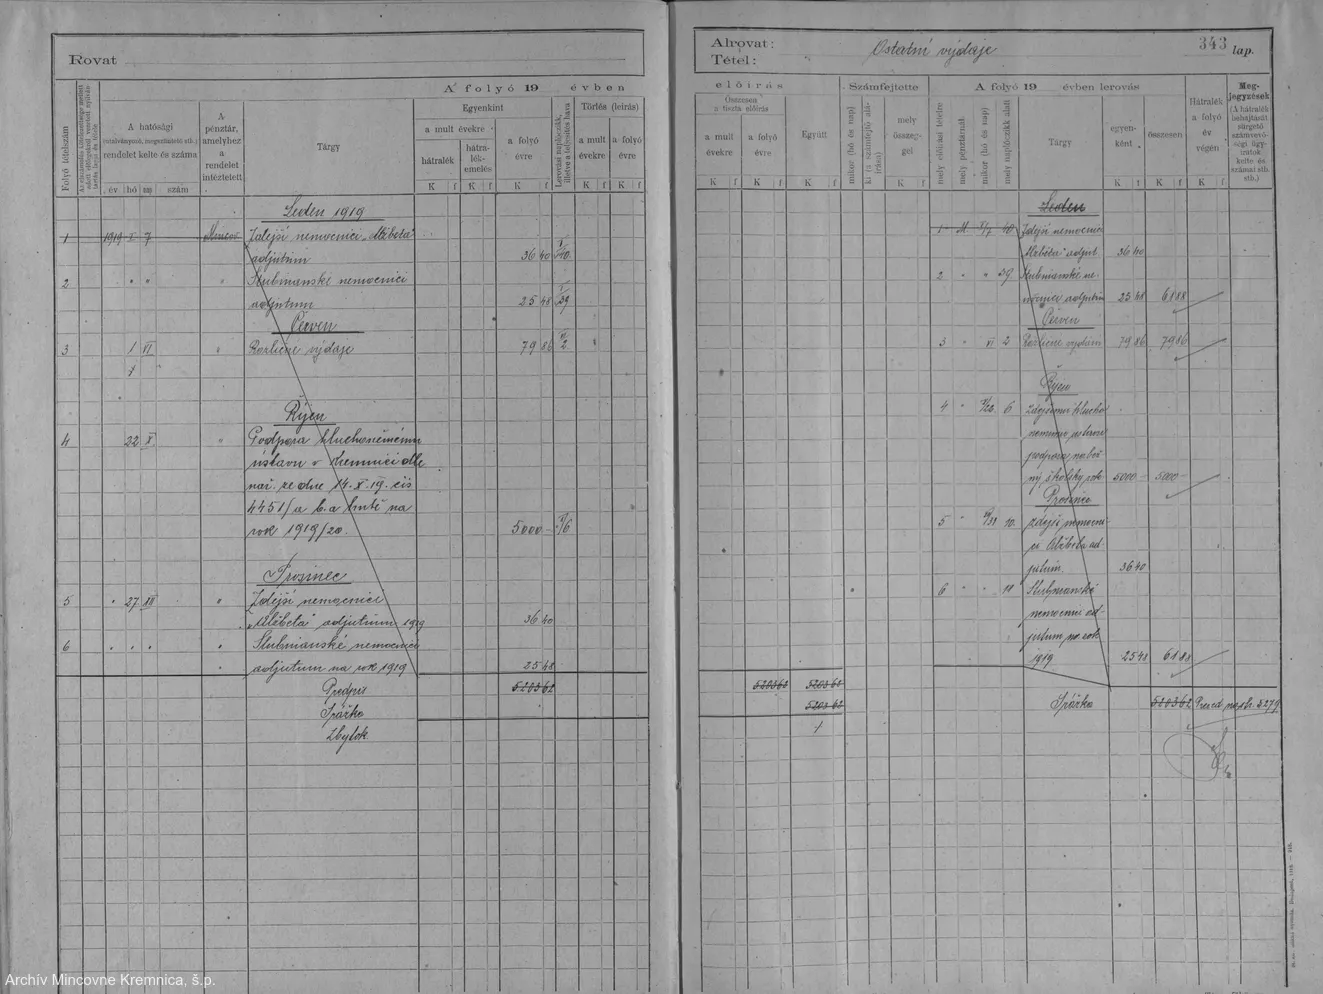 Rovat
A folyó 19 évben
Folyó tételszám
A hatósági
(utalványozó, megszüntető stb.)
rendelet kelte és száma
év hó nap szám
A
pénztár,
amelyhez
a
rendelet
intéztetett
Tárgy
Egyenkint
a mult évekre
hátralék
hátra-
lék-
emelés
a folyó
évre
Törlés (leirás)
a mult
évekre
a folyó
évre
K f K f K f K f K f
Leden 1919
1 1919 I 7 Zdejší nemocnici „Alžběta"
adjutum 36 40 I/40
2 " " " Štubnianské nemocnici
adjutum 25 48 I/39
Červen
3 1 VI " Rozličné výdaje 79 86 VI/2
Říjen
4 22 X " Podpora hluchoněmému
ústavu v Kremnici dle
nař. ze dne 14.X.19. čís
4451/a b.a hutě na
rok 1919/20. 5000 – X/6
Prosinec
5 " 27 XII " Zdejší nemocnici
„Alžběta" adjutum 1919 36 40
6 " " " " Štubnianské nemocnici
" adjutum na rok 1919 25 48
Předpis 5203 62
Spářka
Zbytek
Alrovat:
Tétel:
Ostatní výdaje
343 lap.
előirás
Összesen
a tiszta előirás
a mult
évekre
a folyó
évre
Együtt
K f K f K f
Számfejtette
mikor (hó és nap)
ki (a számfejtő alá-
irása)
mely
összeg-
gel
K f
A folyó 19 évben lerovás
mely előirási tételre
mely pénztárnál
mikor (hó és nap)
mely naplócikk alatt
Tárgy
egyen-
ként
összesen
K f K f
Hátralék
a folyó
év
végén
K f
Meg-
jegyzések
(A hátralék
behajtását
sürgető
számvevő-
ségi ügy-
iratok
kelte és
számai stb.
stb.)
Leden
1 M. I/7 40 Zdejší nemocnici
Alžběta" adjut. 36 40
2 " " 39 Štubnianské ne-
mocnice adjutum 25 48 61 88
Červen
3 " VI 2 Rozličné vydání 79 86 79 86
Říjen
4 " X/22 6 Zdejšímu hlucho
němému ústavu
podpora na běž
ný školský rok 5000 – 5000 –
Prosinec
5 " XII/31 10. Zdejší nemocni-
ci Alžběta ad-
jutum. 36 40
6 " " 11 Štubnianské
nemocnici ad-
jutum na rok
1919 25 48 61 88
5203 62 5203 62
5203 62
Spářka 5203 62 Převod na str. 5279
Archív Mincovne Kremnica, š.p.